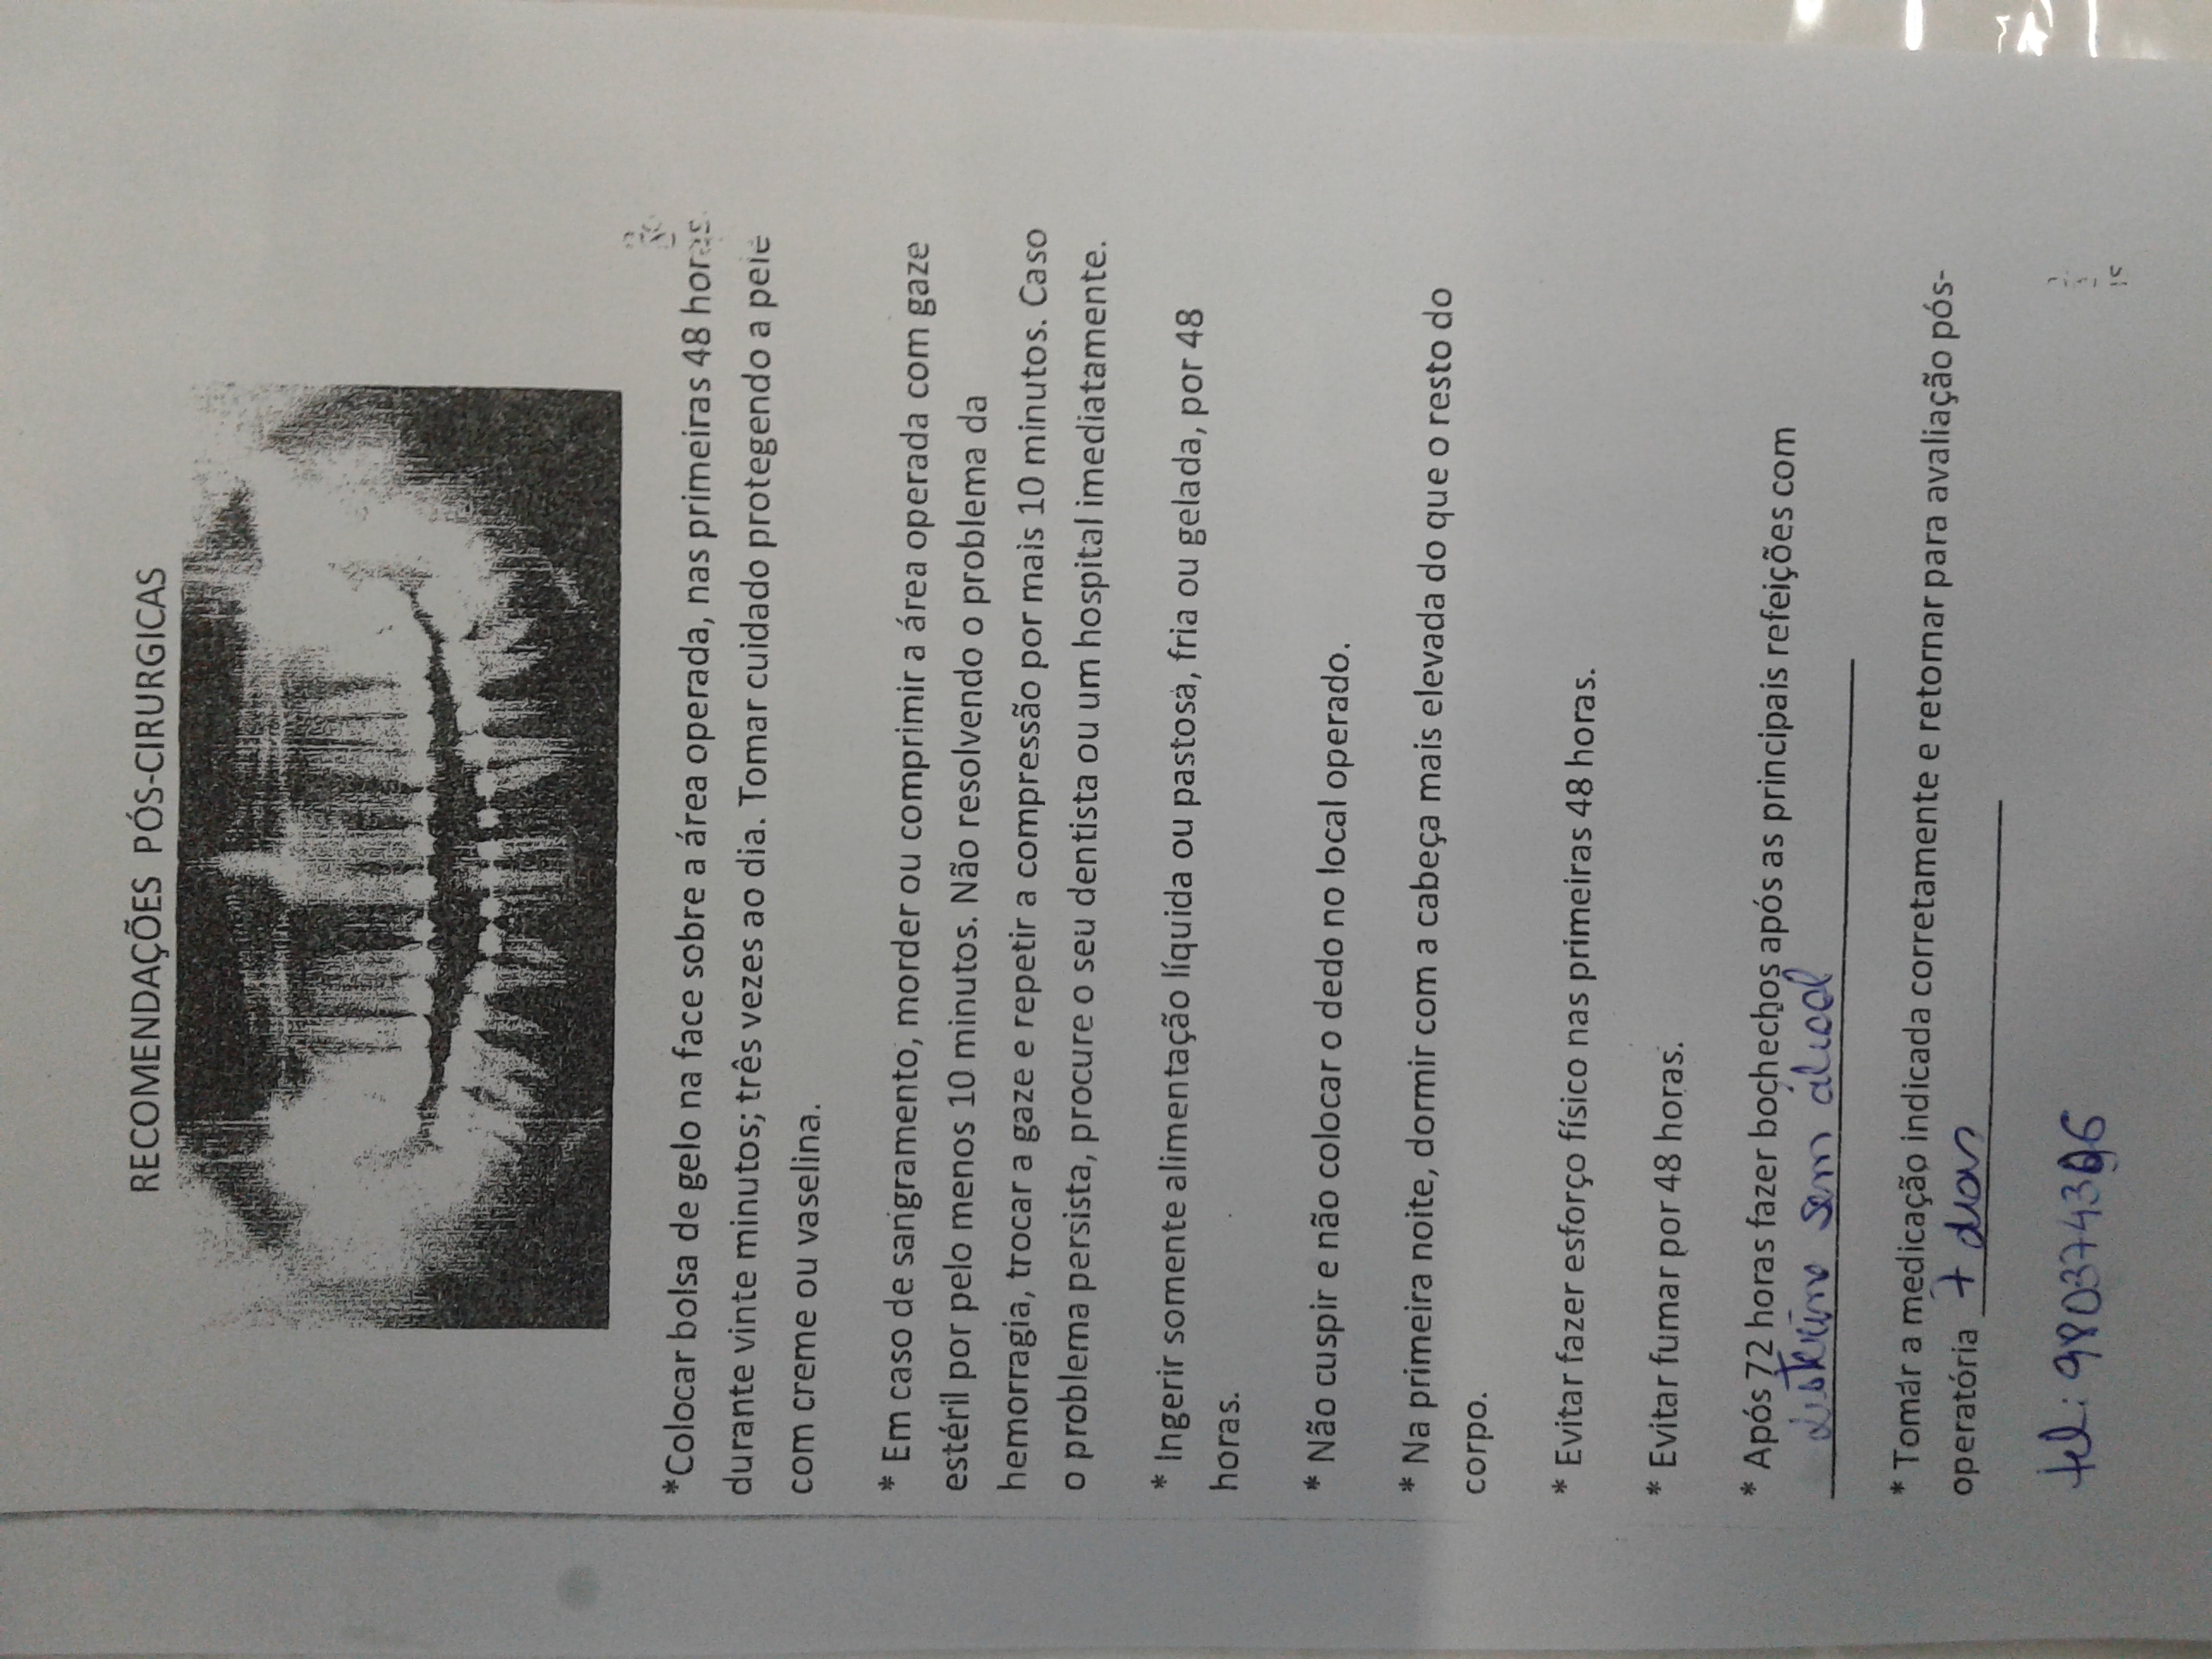 RECOMENDAÇÕES PÓS-CIRURGICAS
*Colocar bolsa de gelo na face sobre a área operada, nas primeiras 48 horas.
durante vinte minutos; três vezes ao dia. Tomar cuidado protegendo a pele
com creme ou vaselina.
* Em caso de sangramento, morder ou comprimir a área operada com gaze
estéril por pelo menos 10 minutos. Não resolvendo o problema da
hemorragia, trocar a gaze e repetir a compressão por mais 10 minutos. Caso
o problema persista, procure o seu dentista ou um hospital imediatamente.
* Ingerir somente alimentação líquida ou pastosa, fria ou gelada, por 48
horas.
* Não cuspir e não colocar o dedo no local operado.
* Na primeira noite, dormir com a cabeça mais elevada do que o resto do
corpo.
* Evitar fazer esforço físico nas primeiras 48 horas.
* Evitar fumar por 48 horas.
* Após 72 horas fazer bochechos após as principais refeições com
listerine sem álcool
* Tomar a medicação indicada corretamente e retornar para avaliação pós-
operatória 7 dias
tel: